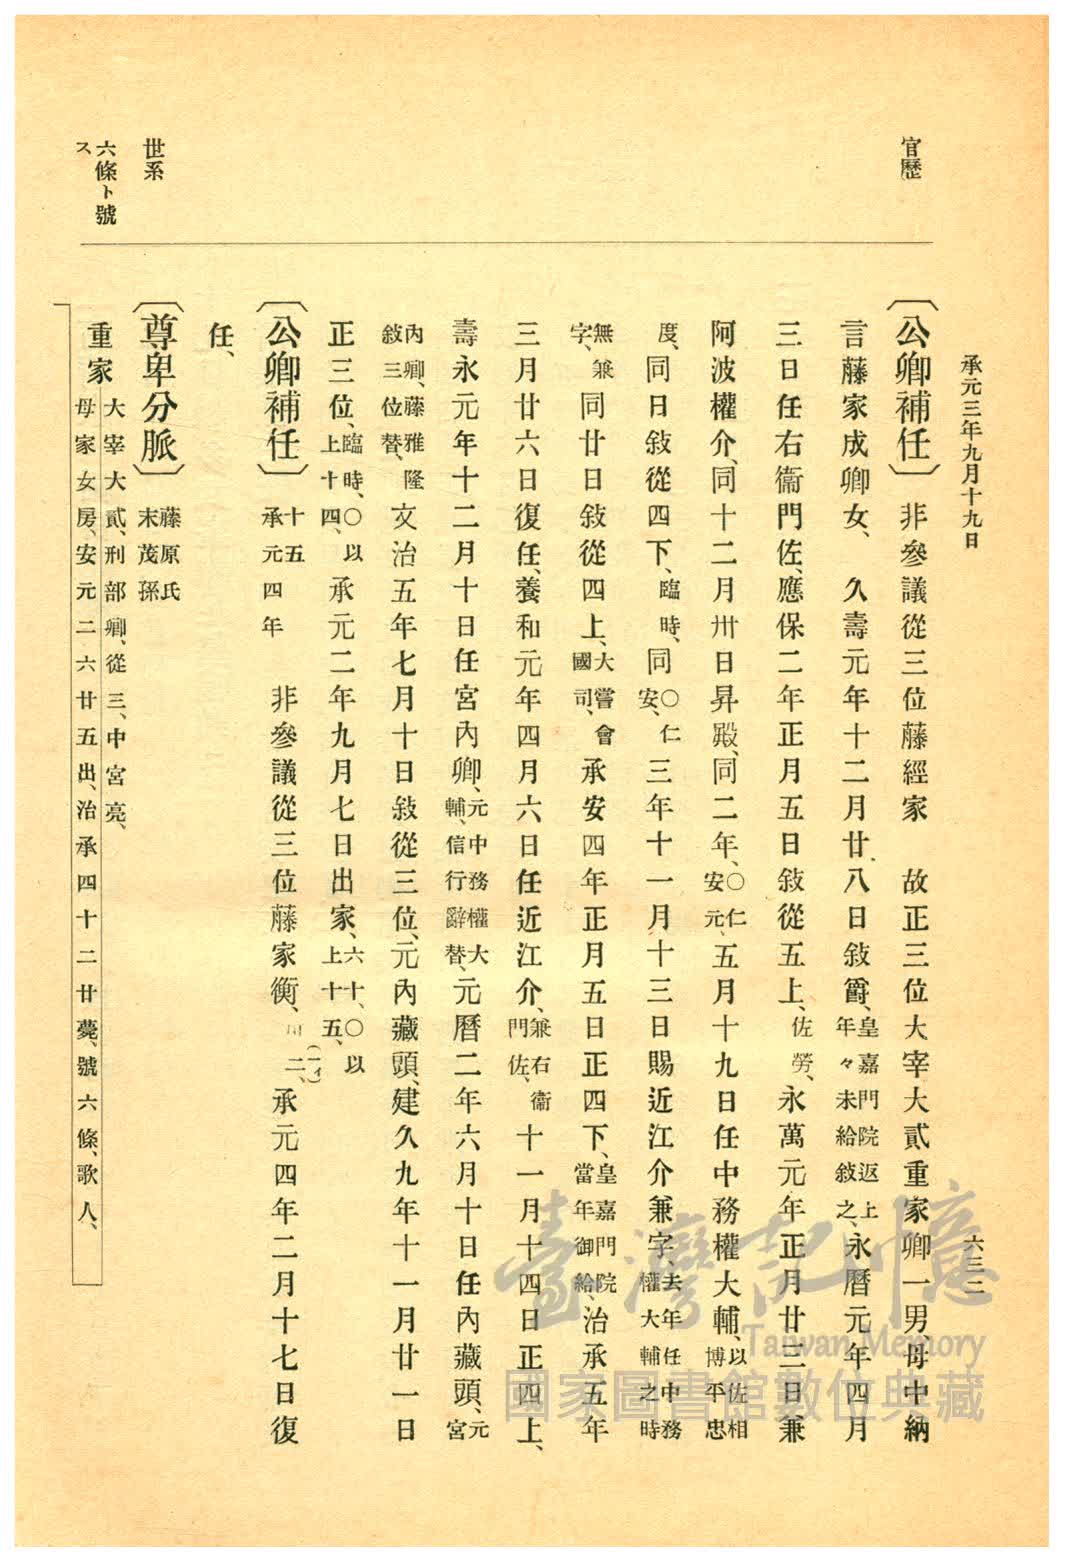 承元三年九月十九日
六三二
官歷
〔公卿補任〕非參議從三位藤經家　故正三位大宰大貳重家卿一男、母中納
言藤家成卿女、久壽元年十二月廿八日敍爵、皇嘉門院返上年々未給敍之、永曆元年四月
三日任右衞門佐、應保二年正月五日敍從五上、佐勞、永萬元年正月廿三日兼
阿波權介、同十二月卅日昇殿、同二年、〇仁安元、五月十九日任中務權大輔、以佐相博平忠
度、同日敍從四下、臨時、同〇仁安、三年十一月十三日賜近江介兼字、去年任中務權大輔之時
無兼字、同廿日敍從四上、大嘗會國司、承安四年正月五日正四下、皇嘉門院當年御給、治承五年
三月廿六日復任、養和元年四月六日任近江介、兼右衞門佐、十一月十四日正四上、
壽永元年十二月十日任宮內卿、元中務權大輔、信行辭替、元曆二年六月十日任內藏頭、元宮
內卿、藤雅隆敍三位替、文治五年七月十日敍從三位、元內藏頭、建久九年十一月廿一日
正三位、臨時、〇以上十四、承元二年九月七日出家、六十、〇以上十五、
〔公卿補任〕十五承元四年　非參議從三位藤家衡、二、(一イ)承元四年二月十七日復
任、
世系
〔尊卑分脈〕藤原氏末茂孫
六條ト號
ス
重家
大宰大貳、刑部卿、從三、中宮亮、
母家女房、安元二六廿五出、治承四十二廿薨、號六條、歌人、
臺灣記憶
Taiwan Memory
國家圖書館數位典藏